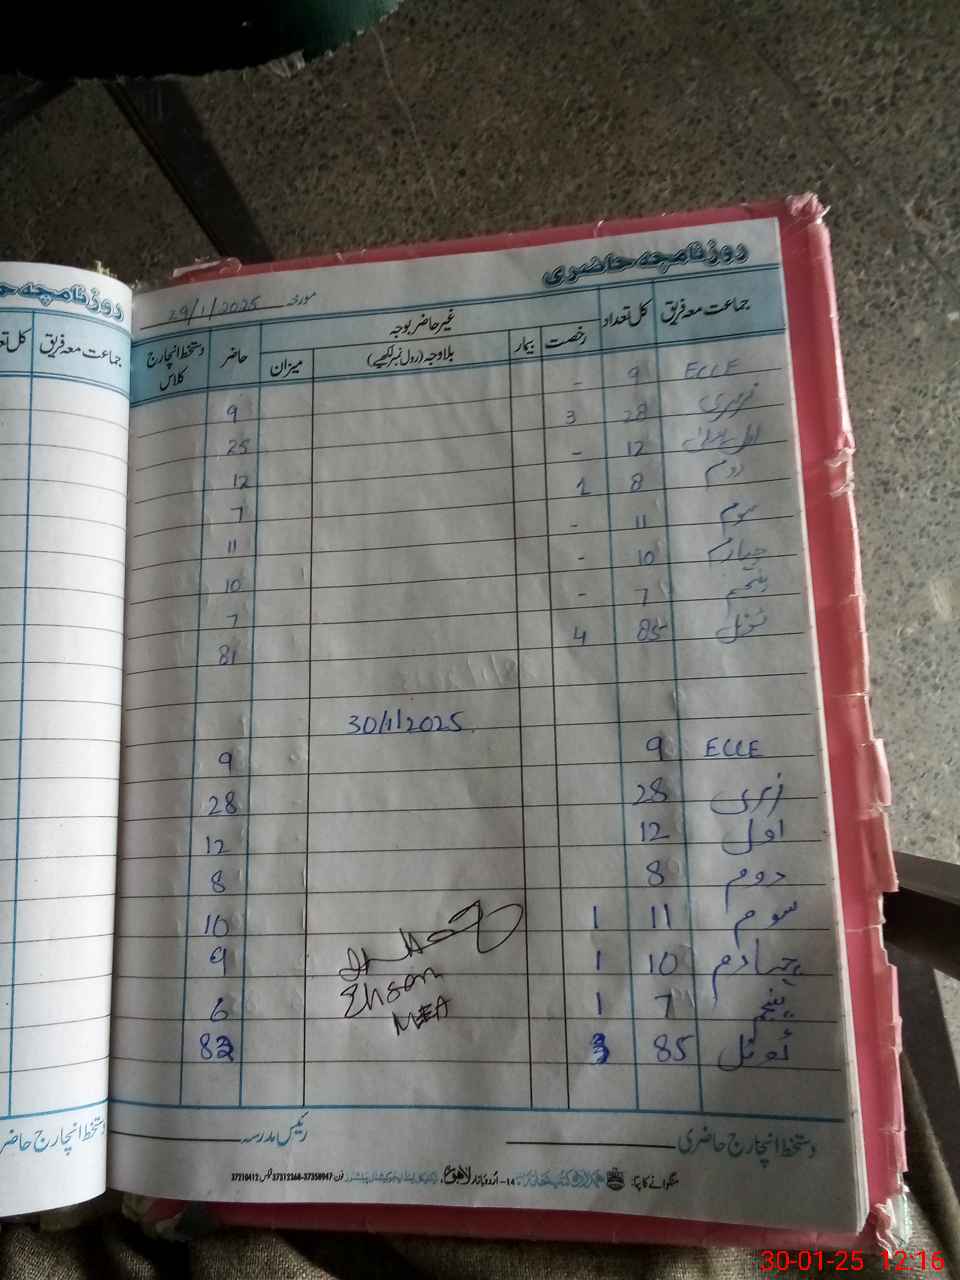 روزنامچہ حاضری
مورخہ 29/1/2025
جماعت معہ فریق کل تعداد غیر حاضر بوجہ حاضر دستخط انچارج کلاس
رخصت بیمار بلاوجہ (رول نمبر لکھیے) میزان
ECCE 9 - 9
نرسری 28 3 25
اول 12 - 12
دوم 8 1 7
سوم 11 - 11
چہارم 10 - 10
پنجم 7 - 7
ٹوٹل 85 4 81
30/1/2025
ECCE 9 9
نرسری 28 28
اول 12 12
دوم 8 8
سوم 11 1 10
چہارم 10 1 9
پنجم 7 1 6
ٹوٹل 85 3 82
Ehsan
MEA
دستخط انچارج حاضری رئیس مدرسہ
منگوانے کا پتہ: 14-اردو بازار لاہور فون 37358947-37312268 فیکس 37210412
روزنامچہ حا
جماعت معہ فریق کل تعد
دستخط انچارج حاضر
30-01-25 12:16